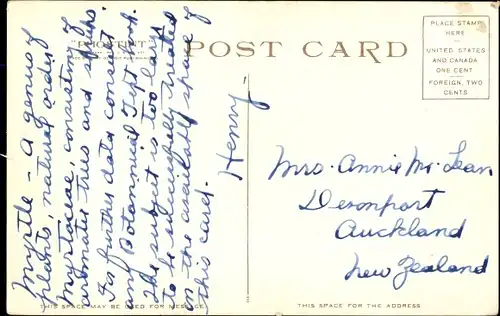 Myrtle - A genus of
plants, natural order
Myrtaceae, consisting of
aromatic trees and shrubs.
For further data consult
any Botannical Text book.
The subject is too large
to be successfully treated
in the available space of
this card.
Henry
POST CARD
PLACE STAMP
HERE
UNITED STATES
AND CANADA
ONE CENT
FOREIGN, TWO
CENTS
Mrs. Annie Mc Lean
Devonport
Auckland
New Zealand
THIS SPACE MAY BE USED FOR MESSAGE
THIS SPACE IS FOR THE ADDRESS